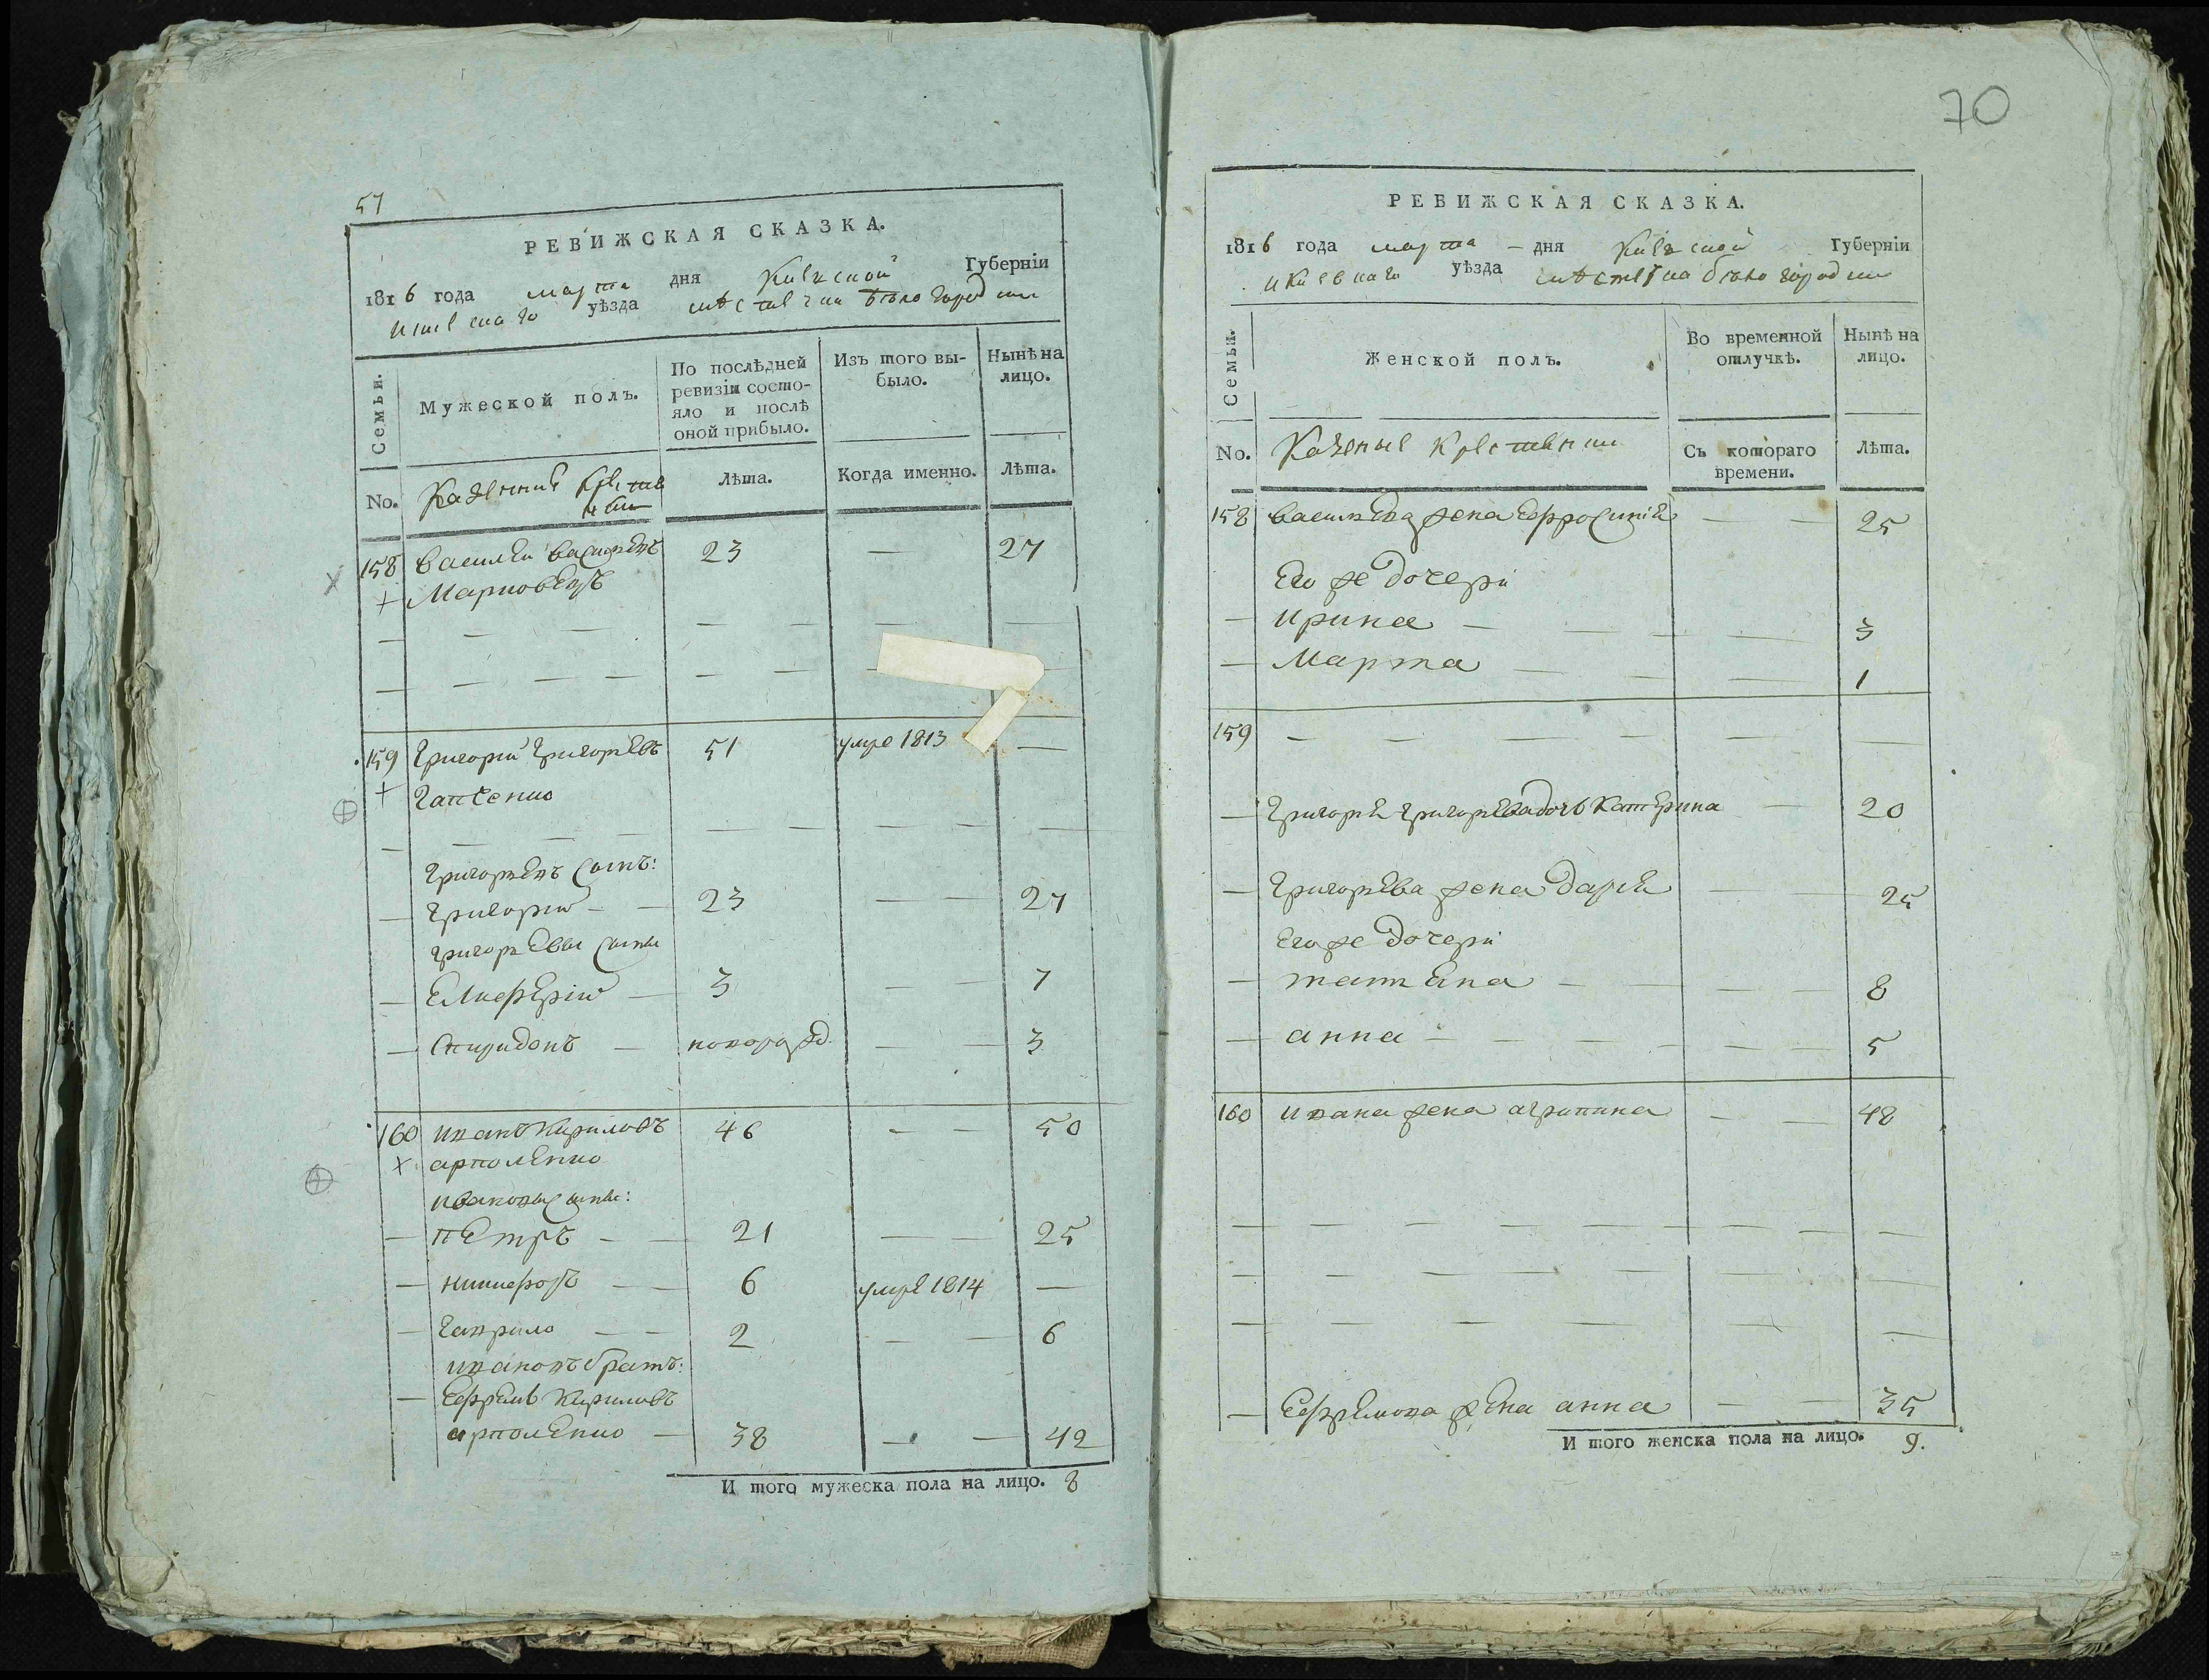 57
РЕВИЖСКАЯ СКАЗКА.
1816 года марта дня Киевской Губерніи
и Киевскаго уѣзда мѣстечка бѣлогородки
Семьи.
Мужеской полъ.
По послѣдней ревизіи состояло и послѣ оной прибыло.
Изъ того выбыло.
Нынѣ на лицо.
No. Казенние Крестьяни
Лѣта. Когда именно. Лѣта.
158 Василей Васильевъ 23 — 27
+ Марковецъ
159 Григорий Григорьевъ 51 умре 1813 —
+ Гапченко
Григорьевъ сынъ:
— Григорий — — 23 — — 27
Григорьевы сыны
— Елиеферий — 3 — — 7
— Спиридонъ — новорожд. — — 3
160 Иванъ Кириловъ 46 — — 50
× ярмоленко
Ивановы сыны:
— Петръ — — 21 — 25
— Никифоръ — — 6 умре 1814 —
— Гаврило — — 2 — — 6
Ивановъ братъ:
— Ефремъ Кириловъ
ярмоленко — 38 — — 42
И того мужеска пола на лицо. 8
70
РЕВИЖСКАЯ СКАЗКА.
1816 года марта — дня Киевской Губерніи
и Киевскаго уѣзда мѣстечка бѣлогородки
Семьи.
Женской полъ.
Во временной отлучкѣ.
Нынѣ на лицо.
No. Казеные Крестьянки
Съ котораго времени.
Лѣта.
158 Васильева жена Ефросиния — — 25
Его же дочери
— Ирина — — — — 3
— Марта — — — — 1
159 — — — — — — —
— Григория Григорьева дочь Катерина — 20
— Григорьева жена Дарья — — 25
Его же дочери
— татьяна — — — — 8
— анна — — — — — 5
160 Ивана жена агрипина — — 48
— Ефремова жена анна — — 35
И того женска пола на лицо. 9.